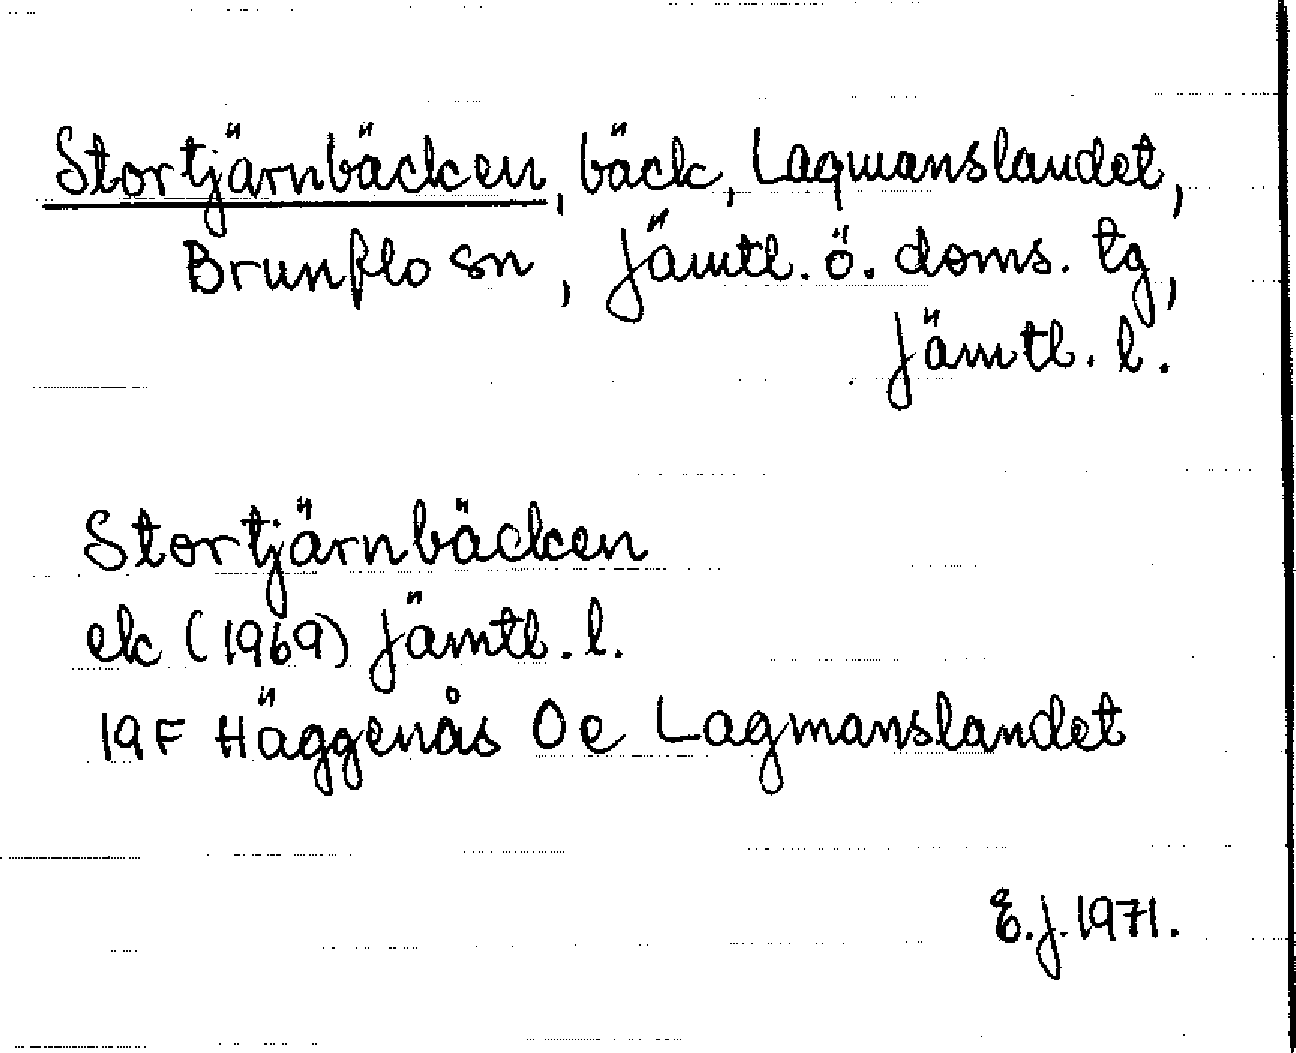 Stortjärnbäcken, bäck, Lagmanslandet,
Brunflo sn, Jämtl. ö. doms. tg,
Jämtl. l.
Stortjärnbäcken
ek (1969) Jämtl. l.
19F Häggenås Oe Lagmanslandet
E.J. 1971.